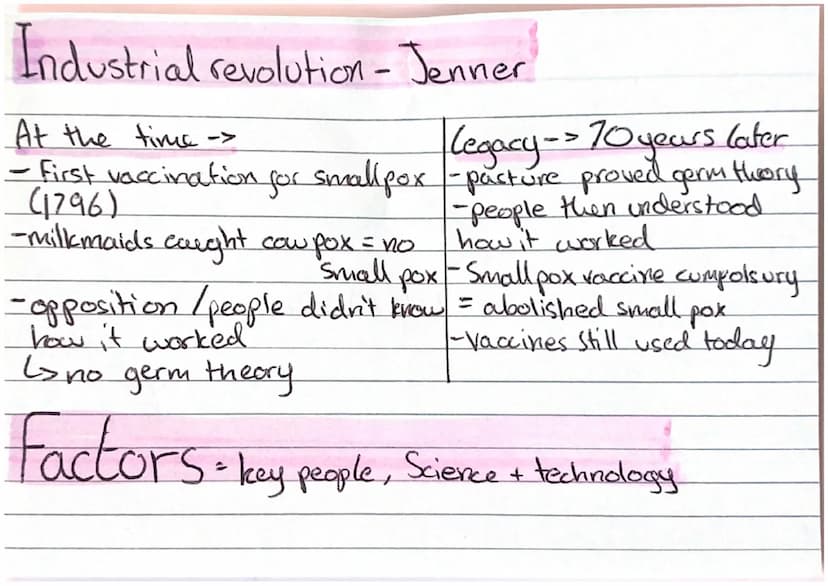 Industrial revolution - Jenner
At the time ->
- First vaccination for smallpox
(1796)
- milkmaids caught cow pox = no
small pox
- opposition / people didn't know
how it worked
↳ no germ theory
Legacy -> 70 years later
- pasture proved germ theory
- people then understood
how it worked
- Small pox vaccine cumpolsury
= abolished small pox
- vaccines still used today
Factors = key people, Science + technology